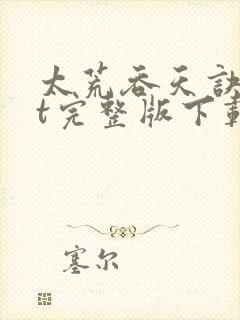 太荒吞天诀
t完整版下载
塞尔